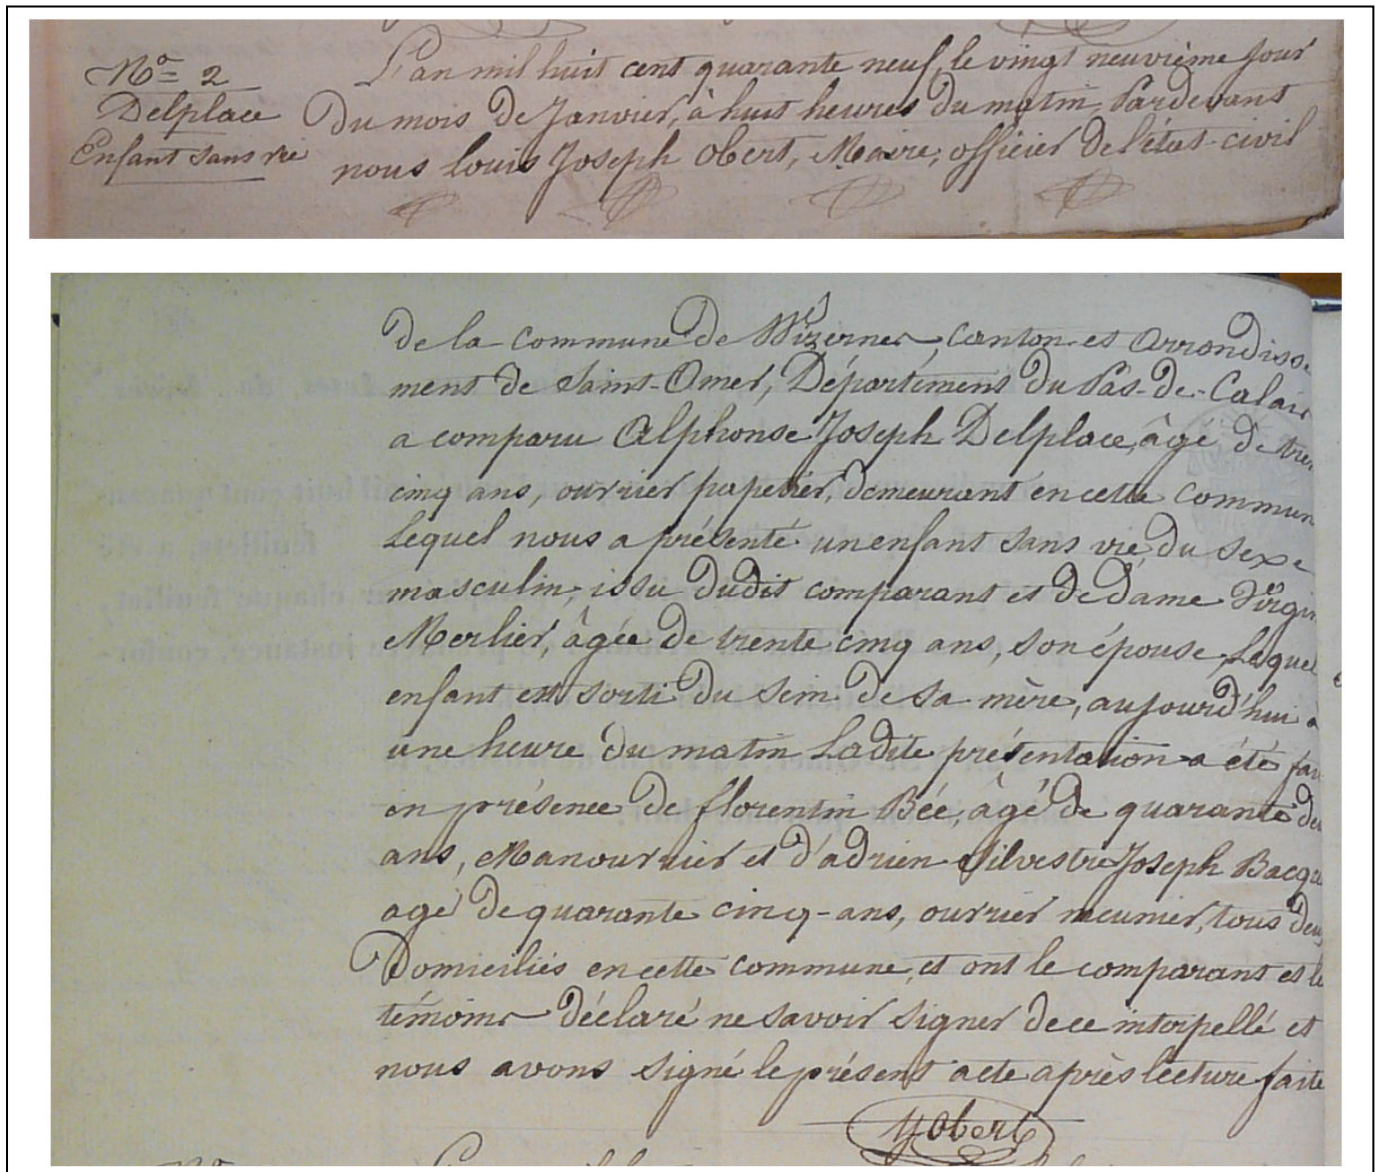 N° 2
Delplace
Enfant sans vie
L'an mil huit cent quarante neuf, le vingt neuvième jour
Du mois de Janvier, à huit heures du matin, Pardevant
nous Louis Joseph Obert, Maire, officier de l'état-civil
de la Commune de Wizernes, Canton et Arrondisse
ment de Saint-Omer, Département du Pas-de-Calais
a comparu Alphonse Joseph Delplace, âgé de tren
cinq ans, ouvrier papetier, demeurant en cette Commun
Lequel nous a présenté un enfant sans vie, du sexe
masculin, issu dudit comparant et de dame Virgin
Merlier, âgée de trente cinq ans, son épouse, Lequel
enfant est sorti du sein de sa mère, aujourd'hui à
une heure du matin Ladite présentation a été fai
en présence de florentin Bée, âgé de quarante deu
ans, Manouvrier et d'adrien Silvestre Joseph Bacqu
agé de quarante cinq-ans, ouvrier meunier, tous deux
Domiciliés en cette commune, et ont le comparant et le
témoins déclaré ne savoir signer de ce interpellé et
nous avons signé le présent acte après lecture faite
Obert